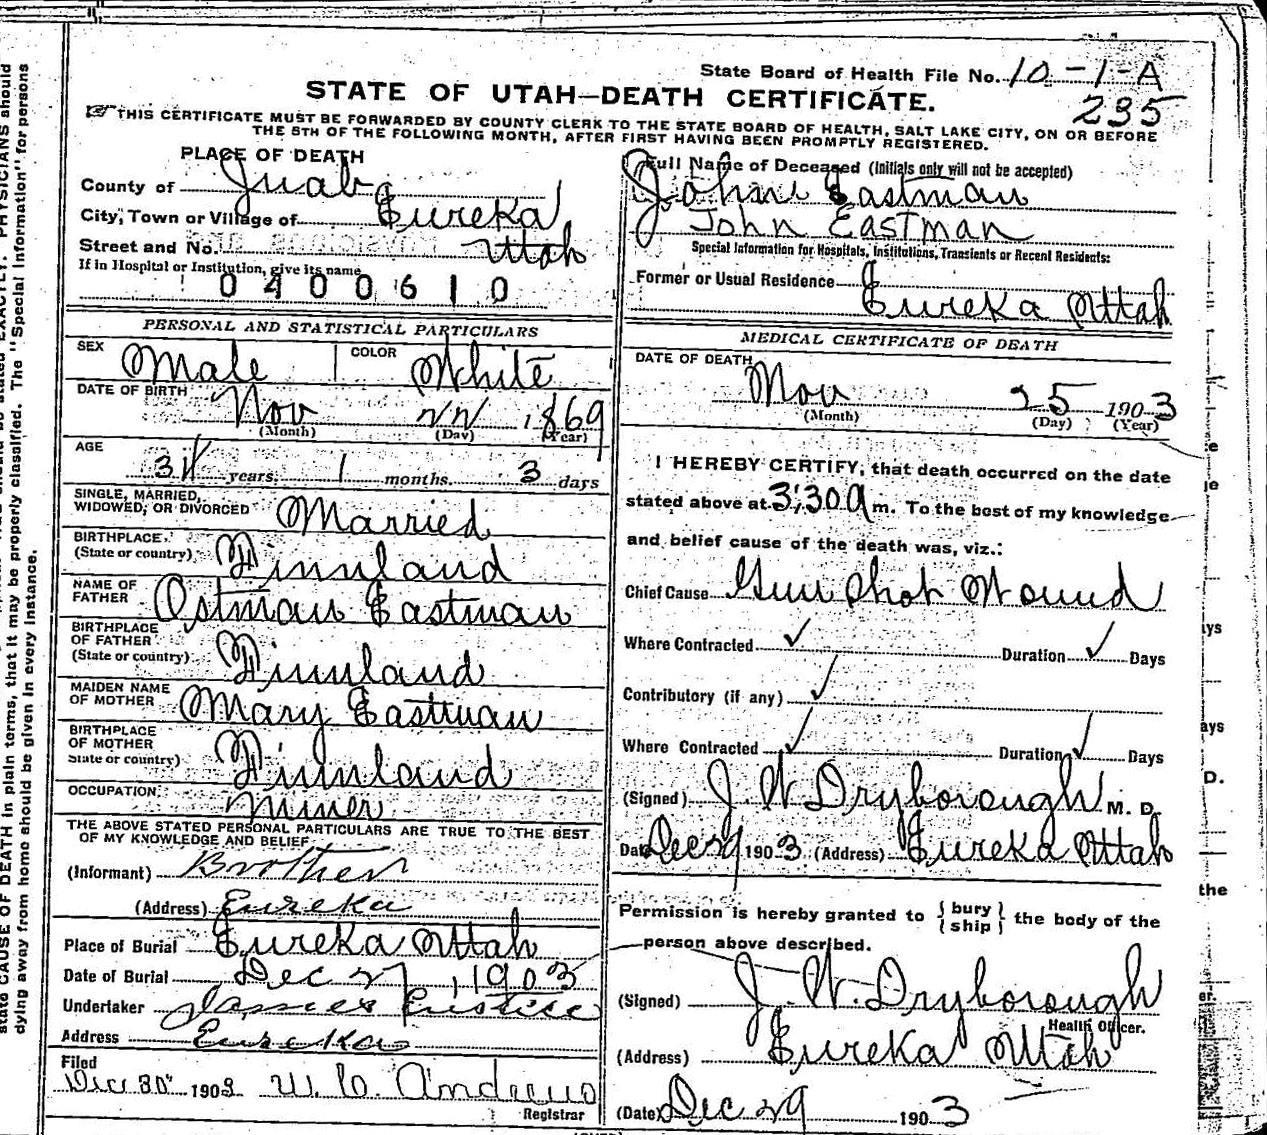 State Board of Health File No. 10-1-A
235
STATE OF UTAH—DEATH CERTIFICATE.
THIS CERTIFICATE MUST BE FORWARDED BY COUNTY CLERK TO THE STATE BOARD OF HEALTH, SALT LAKE CITY, ON OR BEFORE
THE 5TH OF THE FOLLOWING MONTH, AFTER FIRST HAVING BEEN PROMPTLY REGISTERED.
PLACE OF DEATH
County of Juab
City, Town or Village of Eureka
Street and No. Utah
If in Hospital or Institution, give its name
0400610
PERSONAL AND STATISTICAL PARTICULARS
SEX Male COLOR White
DATE OF BIRTH Nov 22 1869
(Month) (Day) (Year)
AGE
34 years. 1 months. 3 days
SINGLE, MARRIED,
WIDOWED, OR DIVORCED Married
BIRTHPLACE
(State or country) Finnland
NAME OF
FATHER Ostman Eastman
BIRTHPLACE
OF FATHER
(State or country) Finnland
MAIDEN NAME
OF MOTHER Mary Eastman
BIRTHPLACE
OF MOTHER
State or country) Finnland
OCCUPATION Miner
THE ABOVE STATED PERSONAL PARTICULARS ARE TRUE TO THE BEST
OF MY KNOWLEDGE AND BELIEF
(Informant) Brother
(Address) Eureka
Place of Burial Eureka Uttah
Date of Burial Dec 27, 1903
Undertaker James Eustice
Address Eureka
Filed
Dec 30" 1903 W. C. Andrews
Registrar
Full Name of Deceased (Initials only will not be accepted)
John Eastman
John Eastman
Special Information for Hospitals, Institutions, Transients or Recent Residents:
Former or Usual Residence
Eureka Uttah
MEDICAL CERTIFICATE OF DEATH
DATE OF DEATH
Nov 25 1903
(Month) (Day) (Year)
I HEREBY CERTIFY, that death occurred on the date
stated above at 3:30 a m. To the best of my knowledge
and belief cause of the death was, viz.:
Chief Cause Gun Shot Wound
Where Contracted ✓ Duration ✓ Days
Contributory (if any) ✓
Where Contracted ✓ Duration ✓ Days
(Signed) J W Dryborough M. D.
Date Dec 29 1903 (Address) Eureka Uttah
Permission is hereby granted to {bury
ship} the body of the
person above described.
(Signed) J. W. Dryborough
Health Officer.
(Address) Eureka Uttah
(Date) Dec 29 1903
state CAUSE OF DEATH in plain terms, that it may be properly classified. The "Special Information" for persons
dying away from home should be given in every instance.